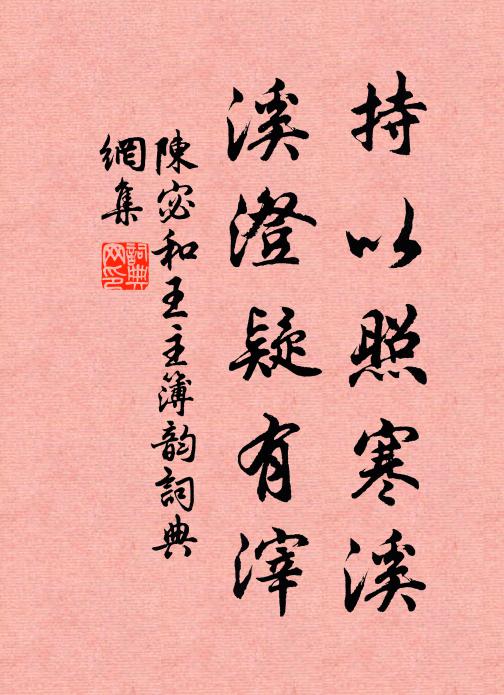 持以照寒溪
溪澄疑有滓
陳宓和王主簿韵詞典
網集
詞典网印